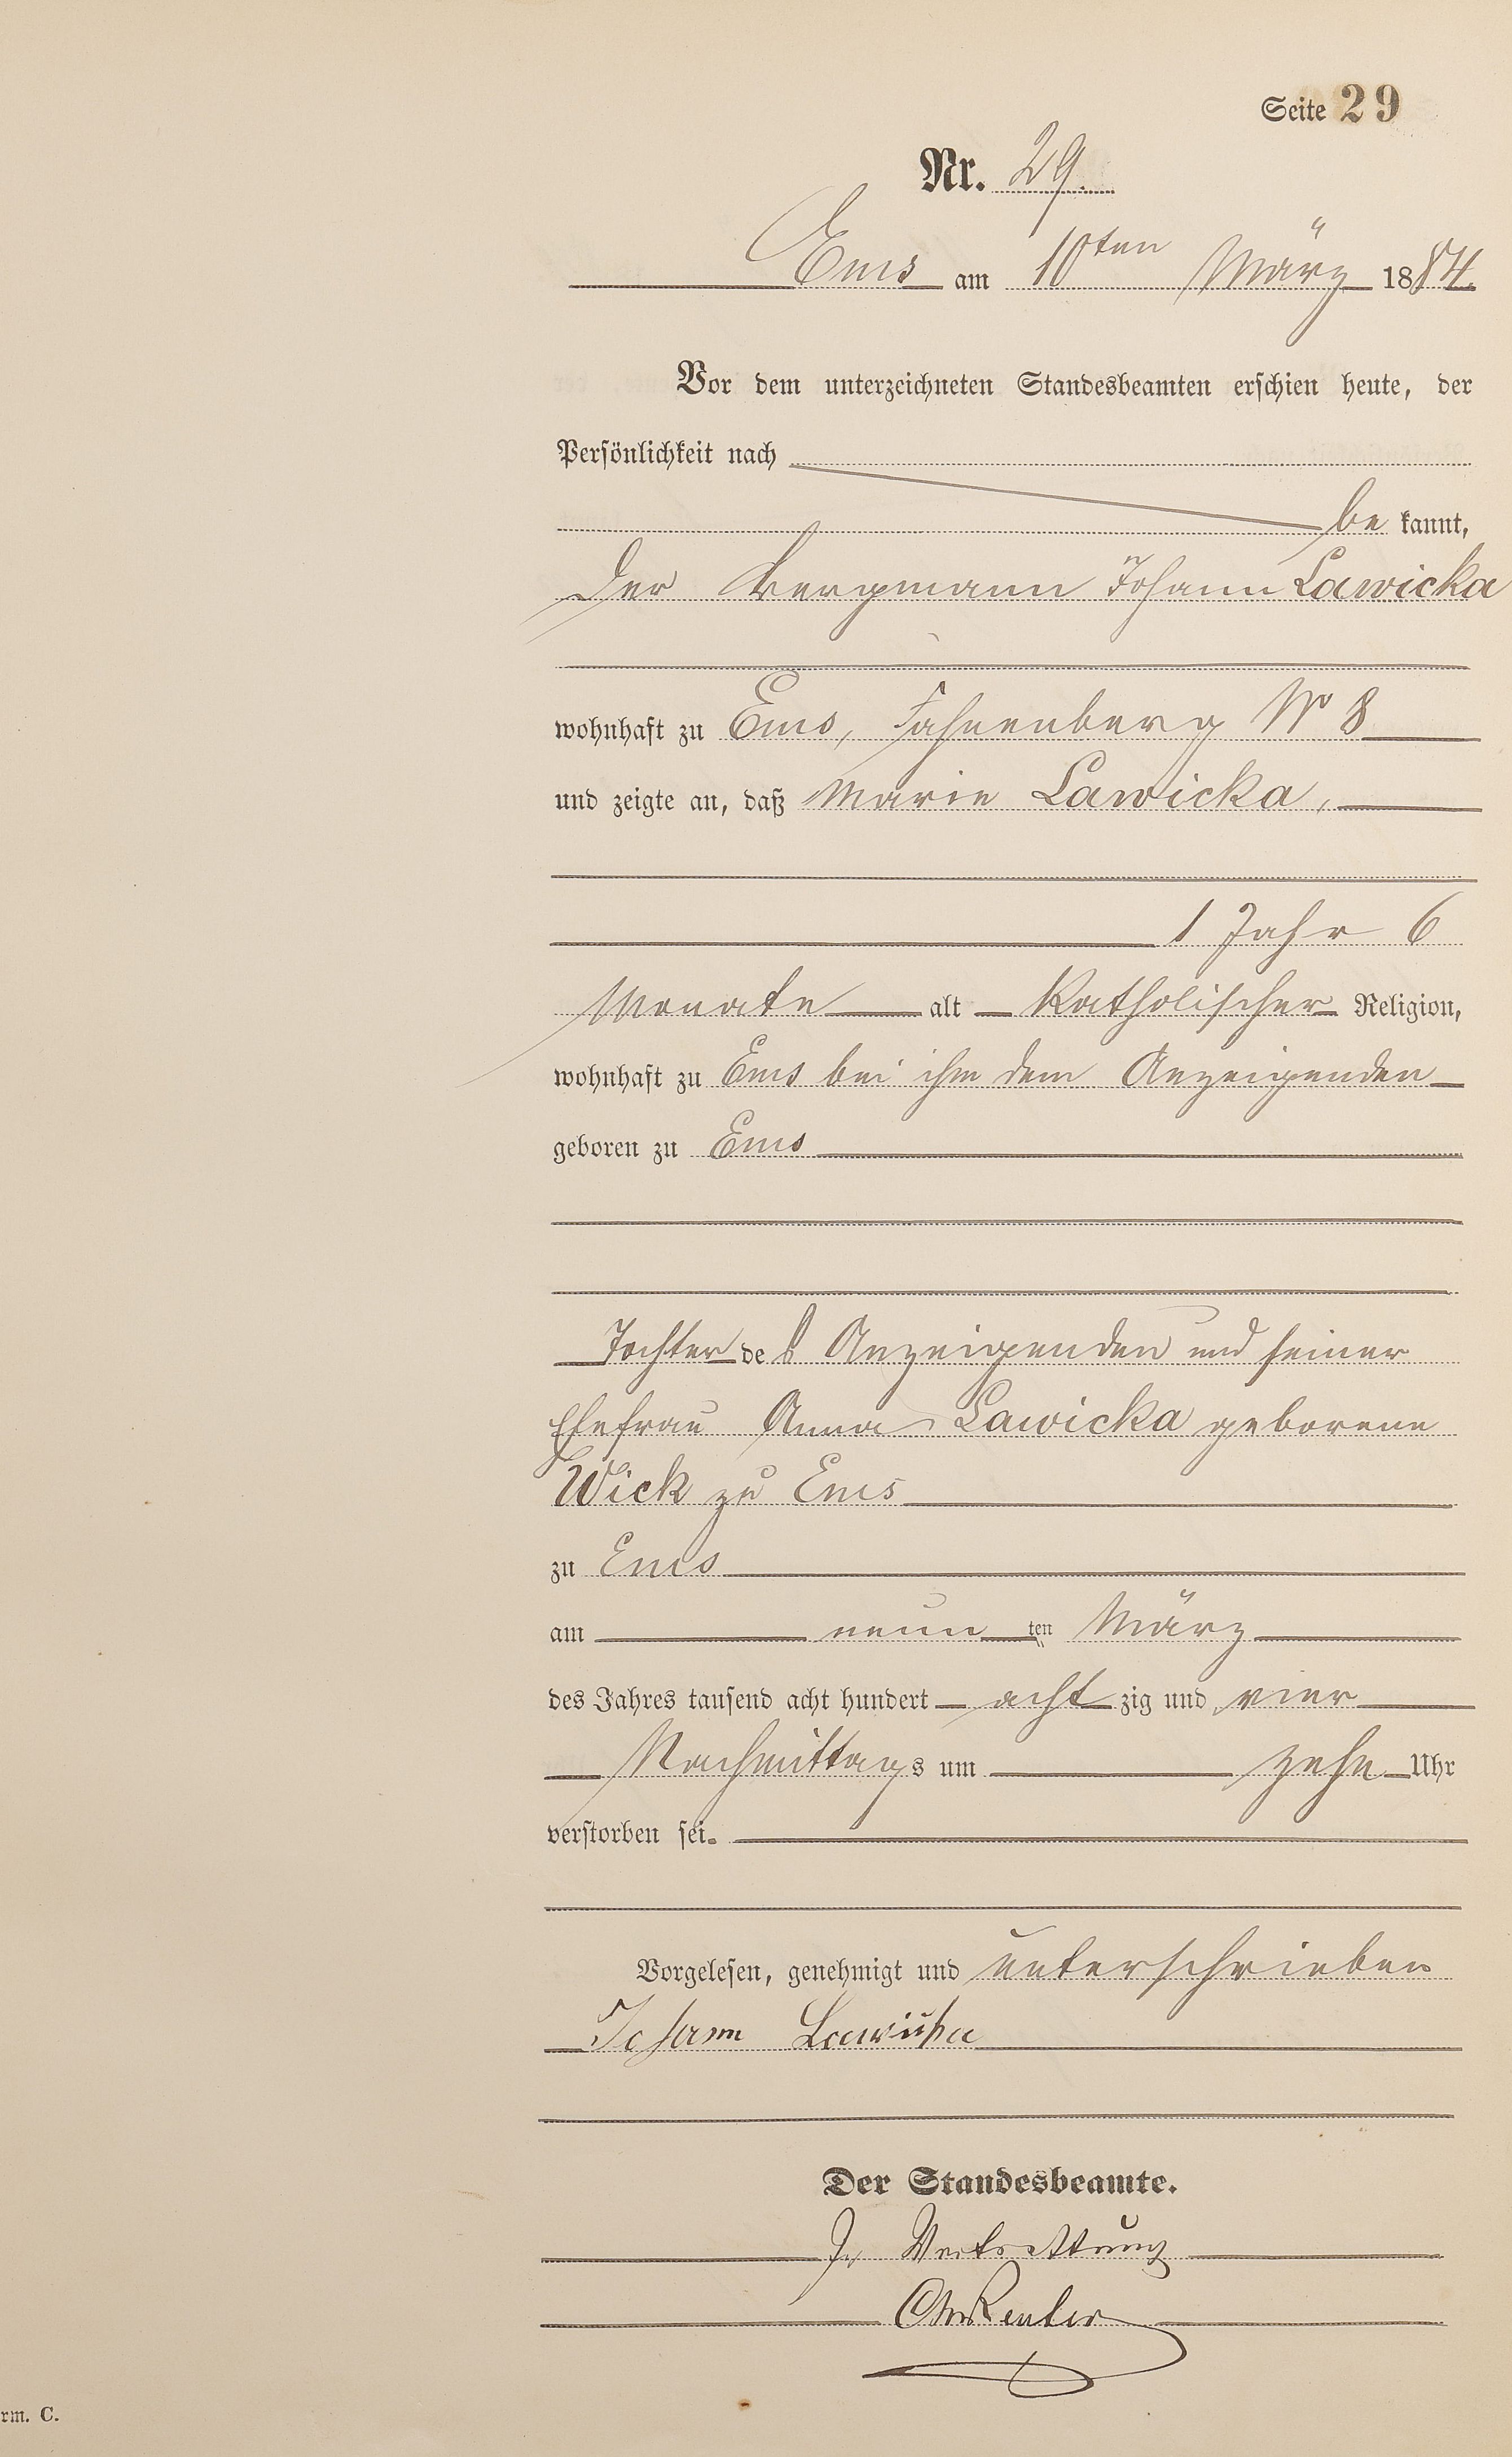 Seite 29
Nr. 29.
Ems am 10ten März 1884.
Vor dem unterzeichneten Standesbeamten erschien heute, der
Persönlichkeit nach
be kannt,
der Bergmann Johann Lawicka
wohnhaft zu Ems, Fahnenberg No 8
und zeigte an, daß Marie Lawicka,
1 Jahr 6
Monate alt Katholischer Religion,
wohnhaft zu Ems bei ihm dem Anzeigenden
geboren zu Ems
Tochter des Anzeigenden und seiner
Ehefrau Anna Lawicka geborene
Wick zu Ems
zu Ems
am neun ten März
des Jahres tausend acht hundert acht zig und vier
Nachmittags um zehn Uhr
verstorben sei.
Vorgelesen, genehmigt und unterschrieben
Johann Lawicka
Der Standesbeamte.
In Vertretung
Reuter
rm. C.